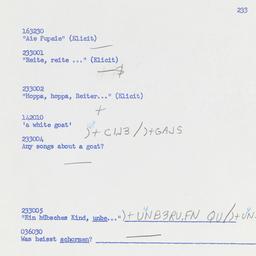 233
163230
"Aie Pupele" (Elicit)
233001
"Reite, reite ..." (Elicit)
233002
"Hoppa, hoppa, Reiter..." (Elicit)
142010
'a white goat'
233004
Any songs about a goat?
233005
"Ein hübsches Kind, unbe..."
036030
Was heisst schormen?